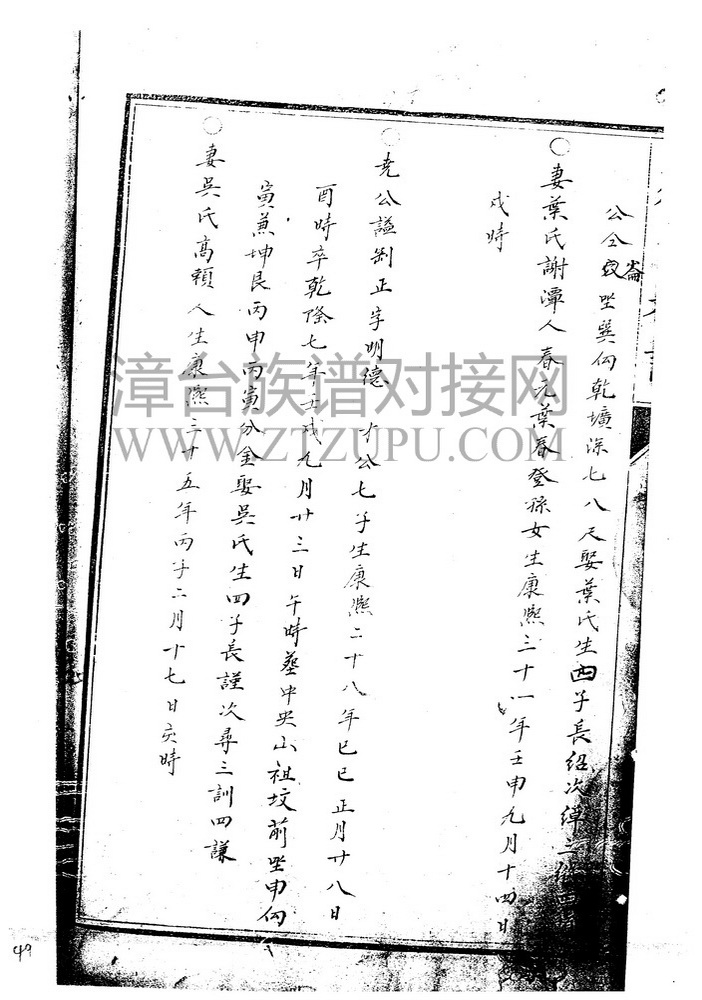 公仝 崙 坐巽向乾壙深七八尺娶葉氏生四子長紹次綽三
妻葉氏謝潭人春元葉春登孫女生康熙三十一年壬申九月十四日
戌時
尭公謚制正字明德 才公七子生康熙二十八年巳巳正月廿八日
酉時卒乾隆七年壬戌九月廿三日午時塟中央山祖坟前坐申向
寅兼坤艮丙申丙寅分金娶吳氏生四子長謹次尋三訓四謙
妻吳氏高頼人生康熙三十五年丙子二月十七日亥時
漳台族谱对接网
WWW.ZTZUPU.COM
49